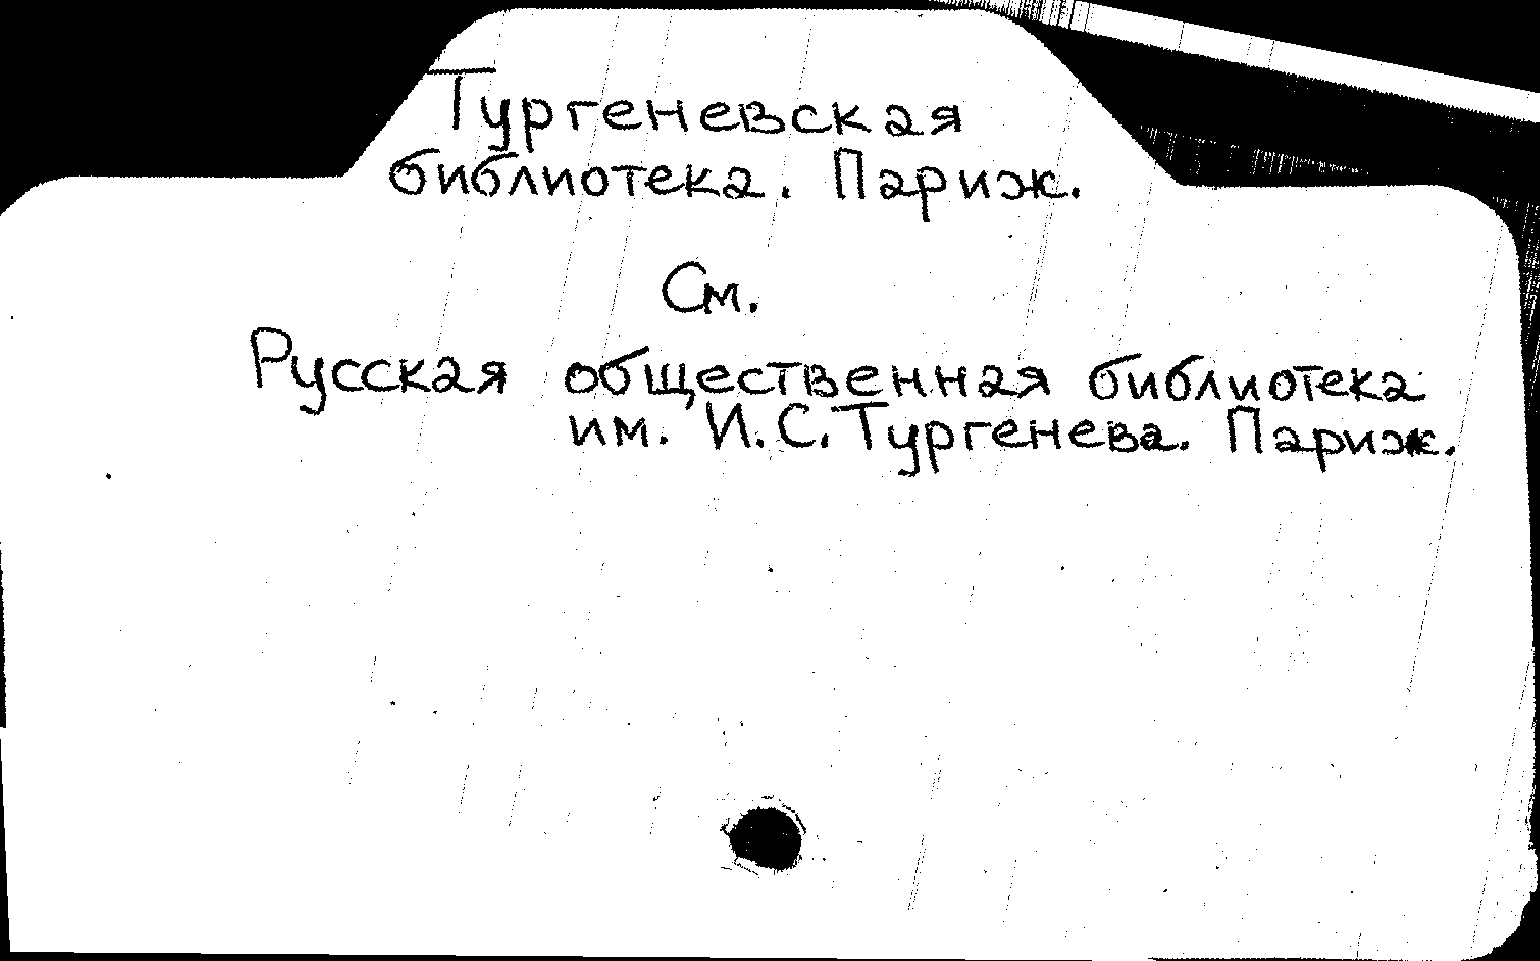 Тургеневская
библиотека. Париж.
См.
Русская общественная библиотека
им. И.С. Тургенева. Париж.